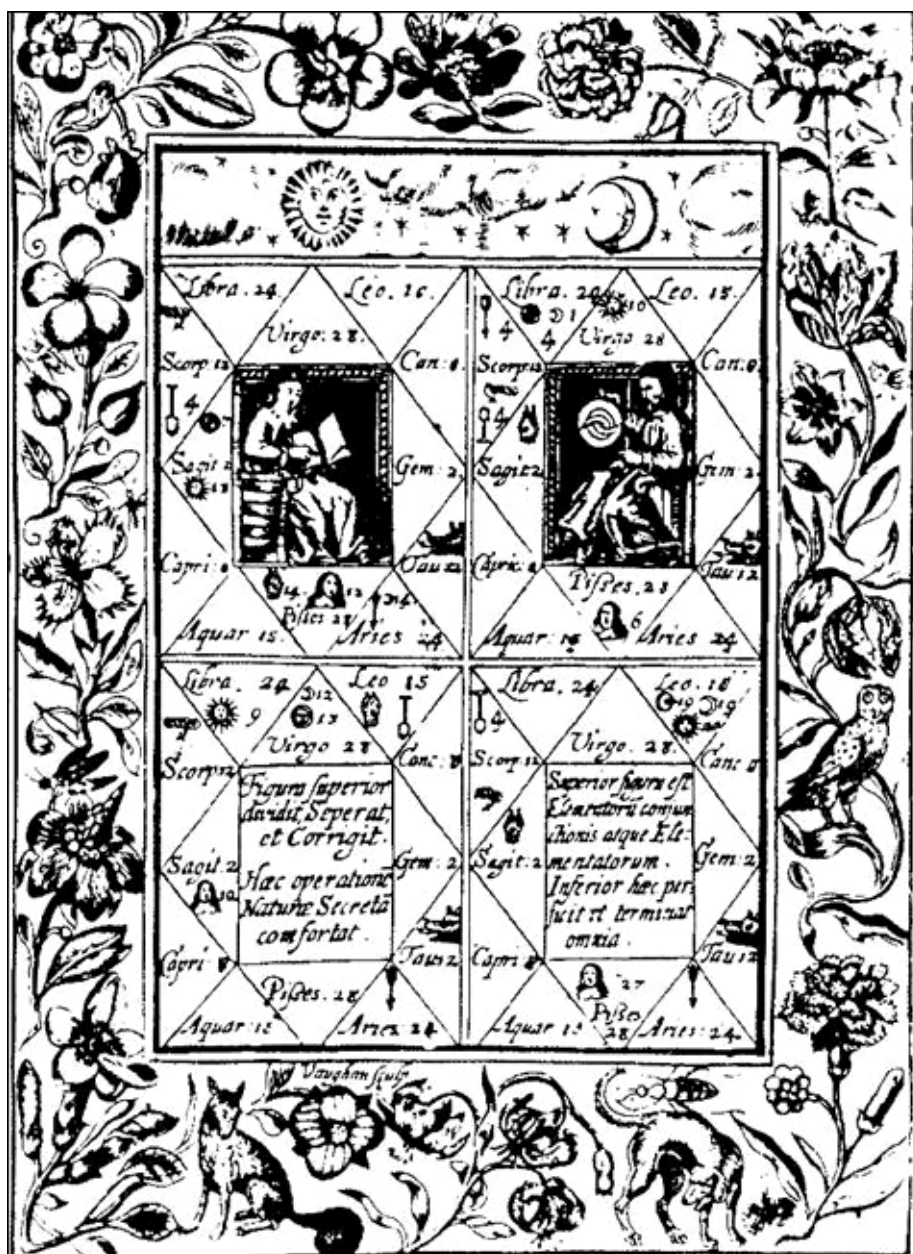 Libra. 24
Leo. 16.
Virgo. 28.
Scorp. 12
Can: 8.
4
Sagit 2
13
Gem: 2
Capri: 8
Tau 12
14
12
Pisces 28
Aquar 15.
Aries 24
Libra. 24
10
Leo. 15.
4
1
4
Virgo 28
Scorp. 12
Can: 8
4
Sagit 2
Gem: 2.
Capric: 8
Tau: 12
Pisces. 28
6
Aquar: 15
Aries 24
Libra. 24
Leo 15
9
12
13
Virgo 28
Scorp 12
Canc: 8
Figura superior
dividit, Seperat,
et Corrigit.
Hæc operatione
Naturæ Secreta
comfortat.
Sagit 2
Gem: 2
10
Capri: 8
Tau 12
Pisces. 28
Aquar 15
Aries 24
Libra. 24
Leo. 15
19
19
4
Virgo. 28.
Scorp. 12
Canc 8
Superior figura est
Elmentorū conjun
ctionis atque Ele-
mentatorum.
Inferior hæc per-
ficit et terminat
omnia.
Sagit. 2
Gem: 2
Capri 8
Tau 12
27
Pisces
28
Aquar 15
Aries. 24
Vaughan sculp